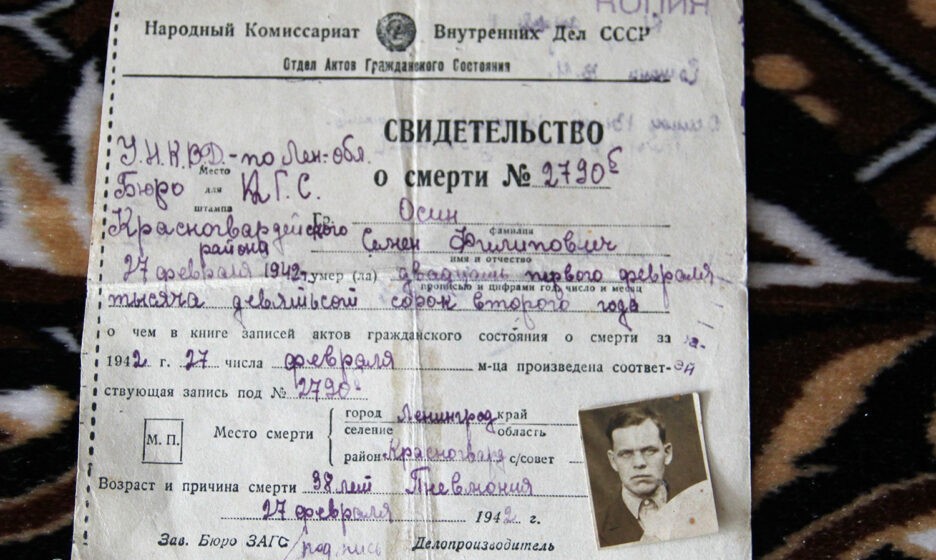 КОПИЯ
Народный Комиссариат Внутренних Дел СССР
Отдел Актов Гражданского Состояния
СВИДЕТЕЛЬСТВО
У.Н.К.В.Д.-по Лен-обл.
Место
о смерти № 2790б
Бюро для
штампа
Гр. Осин
фамилия
Красногвардейского
района Семен Филипович
имя и отчество
27 февраля 1942 г. умер (ла) двадцать первого февраля
прописью и цифрами год, число и месяц
тысяча девятьсот сорок второго года
о чем в книге записей актов гражданского состояния о смерти за
1942 г. 27 числа февраля м-ца произведена соответ-
ствующая запись под № 2790б
М. П.
Место смерти
город Ленинград край
селение область
район Красногвард с/совет
Возраст и причина смерти 38 лет Пневмония
27 февраля 1942 г.
Зав. Бюро ЗАГС /подпись Делопроизводитель